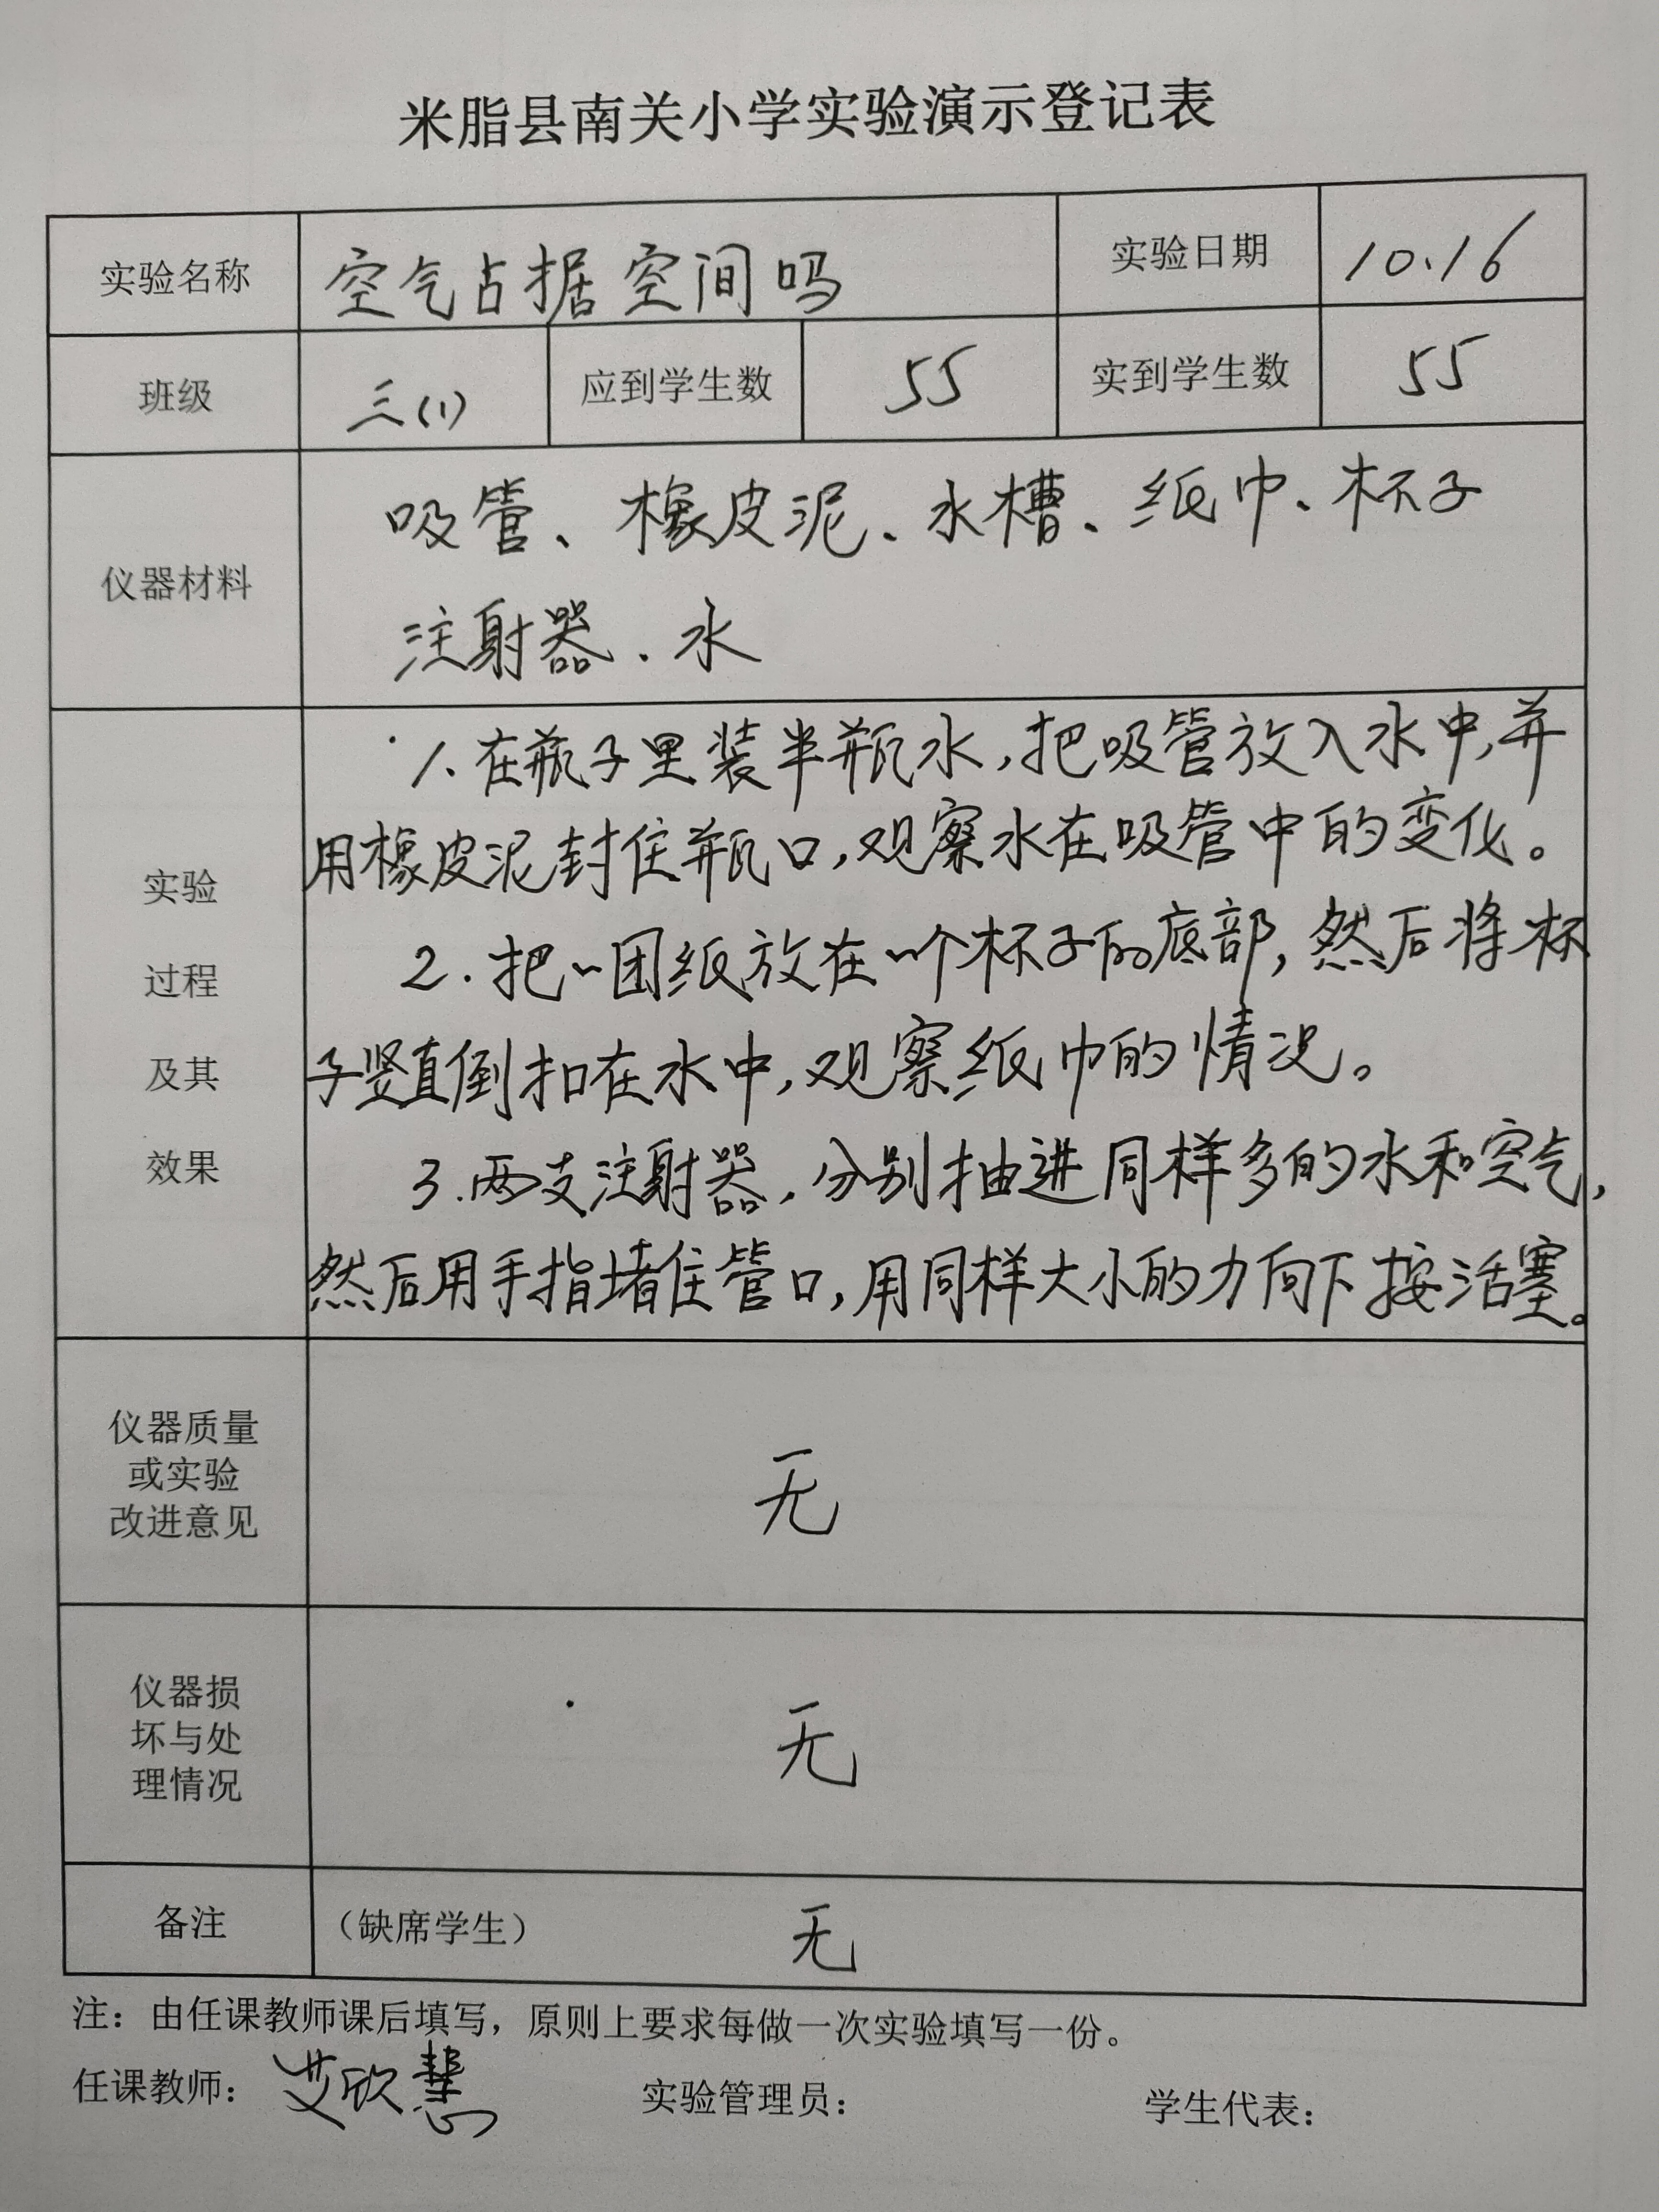 米脂县南关小学实验演示登记表
实验名称 空气占据空间吗 实验日期 10.16
班级 三(1) 应到学生数 55 实到学生数 55
仪器材料
吸管、橡皮泥、水槽、纸巾、杯子
注射器.水
实验
过程
及其
效果
1.在瓶子里装半瓶水,把吸管放入水中,并
用橡皮泥封住瓶口,观察水在吸管中的变化。
2.把一团纸放在一个杯子的底部,然后将杯
子竖直倒扣在水中,观察纸巾的情况。
3.两支注射器,分别抽进同样多的水和空气,
然后用手指堵住管口,用同样大小的力向下按活塞。
仪器质量
或实验
改进意见
无
仪器损
坏与处
理情况
无
备注 （缺席学生） 无
注：由任课教师课后填写，原则上要求每做一次实验填写一份。
任课教师：艾欣慧 实验管理员： 学生代表：